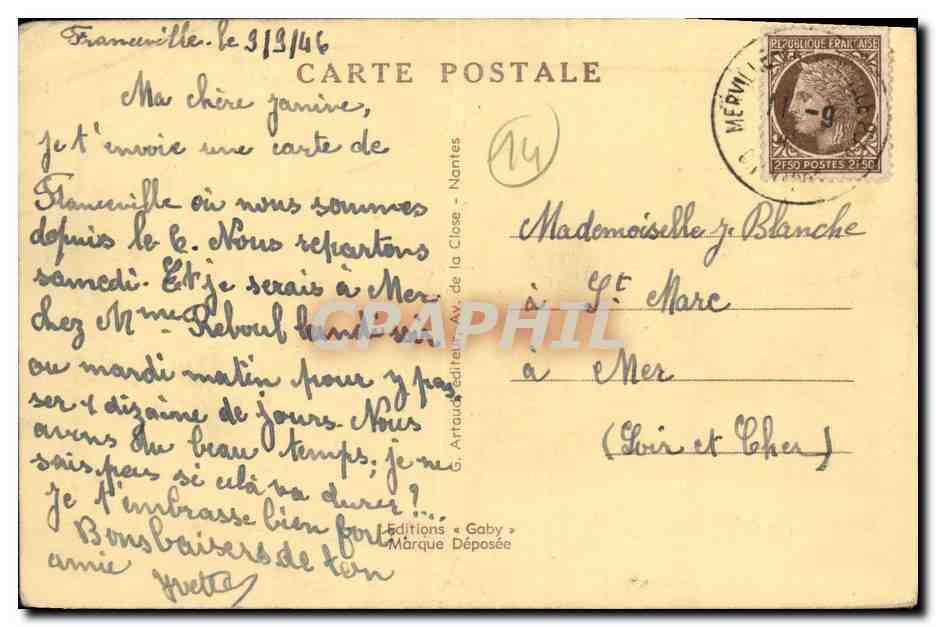 Franceville. le 9/9/46
CARTE POSTALE
Ma chère Janine,
je t'envoie une carte de
Franceville où nous sommes
depuis le 6. Nous repartons
samedi. Et je serais à Mer
chez Mme Reboul lundi soir
ou mardi matin pour y pas
ser 1 dizaine de jours. Nous
avons du beau temps, je ne
sais pas si celà va durer ?...
Je t'embrasse bien fort.
Bons baisers de ton
amie
Yvette
14
G. Artaud, éditeur, Av. de la Close - Nantes
Editions « Gaby »
Marque Déposée
REPUBLIQUE FRANÇAISE
2F50 POSTES 2F50
MERVILLE
-9
Mademoiselle J. Blanche
à St Marc
à Mer
(Loir et Cher)
CPAPHIL